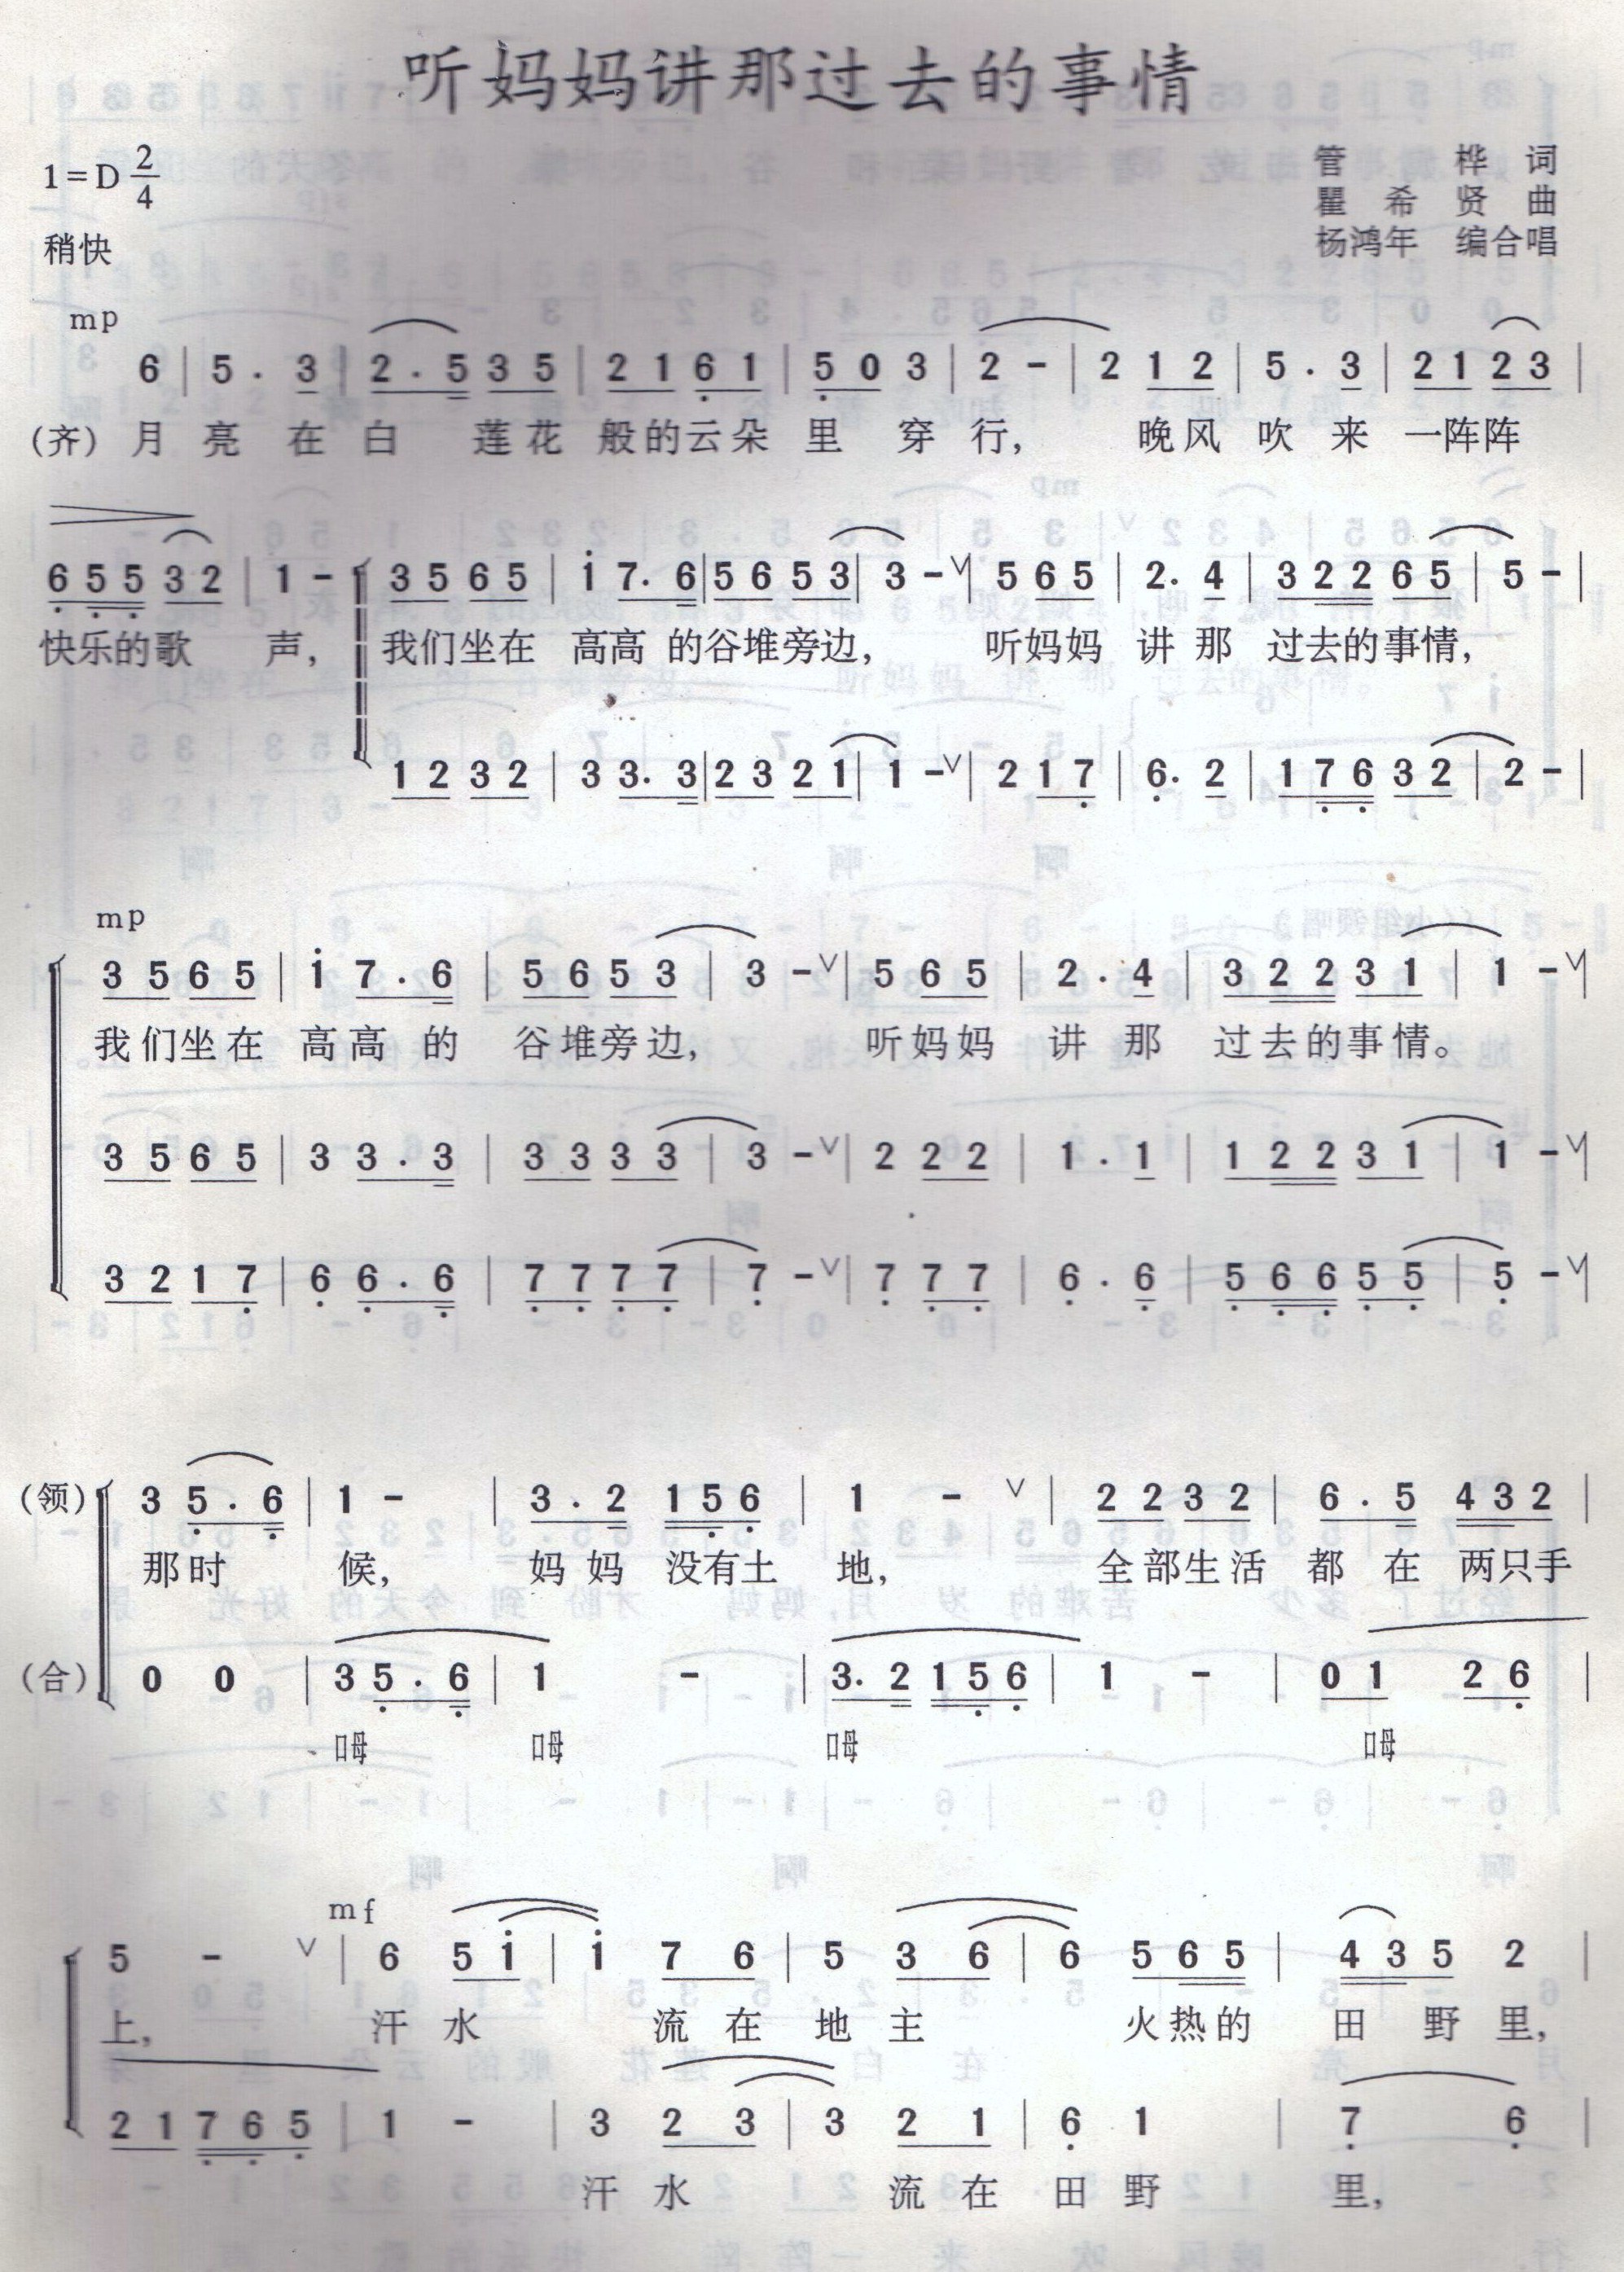 听妈妈讲那过去的事情
1=D 2/4
管桦 词
瞿希贤 曲
杨鸿年 编合唱
稍快
mp
6 | 5 . 3 | 2 . 5 3 5 | 2 1 6 1 | 5 0 3 | 2 - | 2 1 2 | 5 . 3 | 2 1 2 3 |
(齐) 月 亮 在 白 莲 花 般 的 云 朵 里 穿 行, 晚 风 吹 来 一阵阵
6 5 5 3 2 | 1 - | 3 5 6 5 | i 7. 6 | 5 6 5 3 | 3 - ∨ | 5 6 5 | 2. 4 | 3 2 2 6 5 | 5 - |
快乐的歌 声, 我们坐在 高高 的谷堆旁边, 听妈妈 讲 那 过去的事情,
1 2 3 2 | 3 3. 3 | 2 3 2 1 | 1 - ∨ | 2 1 7 | 6. 2 | 1 7 6 3 2 | 2 - |
mp
3 5 6 5 | i 7 . 6 | 5 6 5 3 | 3 - ∨ | 5 6 5 | 2 . 4 | 3 2 2 3 1 | 1 - ∨ |
我们坐在 高高 的 谷堆旁边, 听妈妈 讲 那 过去的事情。
3 5 6 5 | 3 3 . 3 | 3 3 3 3 | 3 - ∨ | 2 2 2 | 1 . 1 | 1 2 2 3 1 | 1 - ∨ |
3 2 1 7 | 6 6 . 6 | 7 7 7 7 | 7 - ∨ | 7 7 7 | 6 . 6 | 5 6 6 5 5 | 5 - ∨ |
(领) 3 5 . 6 | 1 - | 3 . 2 1 5 6 | 1 - ∨ | 2 2 3 2 | 6 . 5 4 3 2 |
那时 候, 妈 妈 没有土 地, 全部生活 都 在 两只手
(合) 0 0 | 3 5 . 6 | 1 - | 3. 2 1 5 6 | 1 - | 0 1 2 6 |
呣 呣 呣 呣
mf
5 - ∨ | 6 5 i | i 7 6 | 5 3 6 | 6 5 6 5 | 4 3 5 2 |
上, 汗 水 流 在 地 主 火热的 田 野 里,
2 1 7 6 5 | 1 - | 3 2 3 | 3 2 1 | 6 1 | 7 6 |
汗 水 流 在 田 野 里,